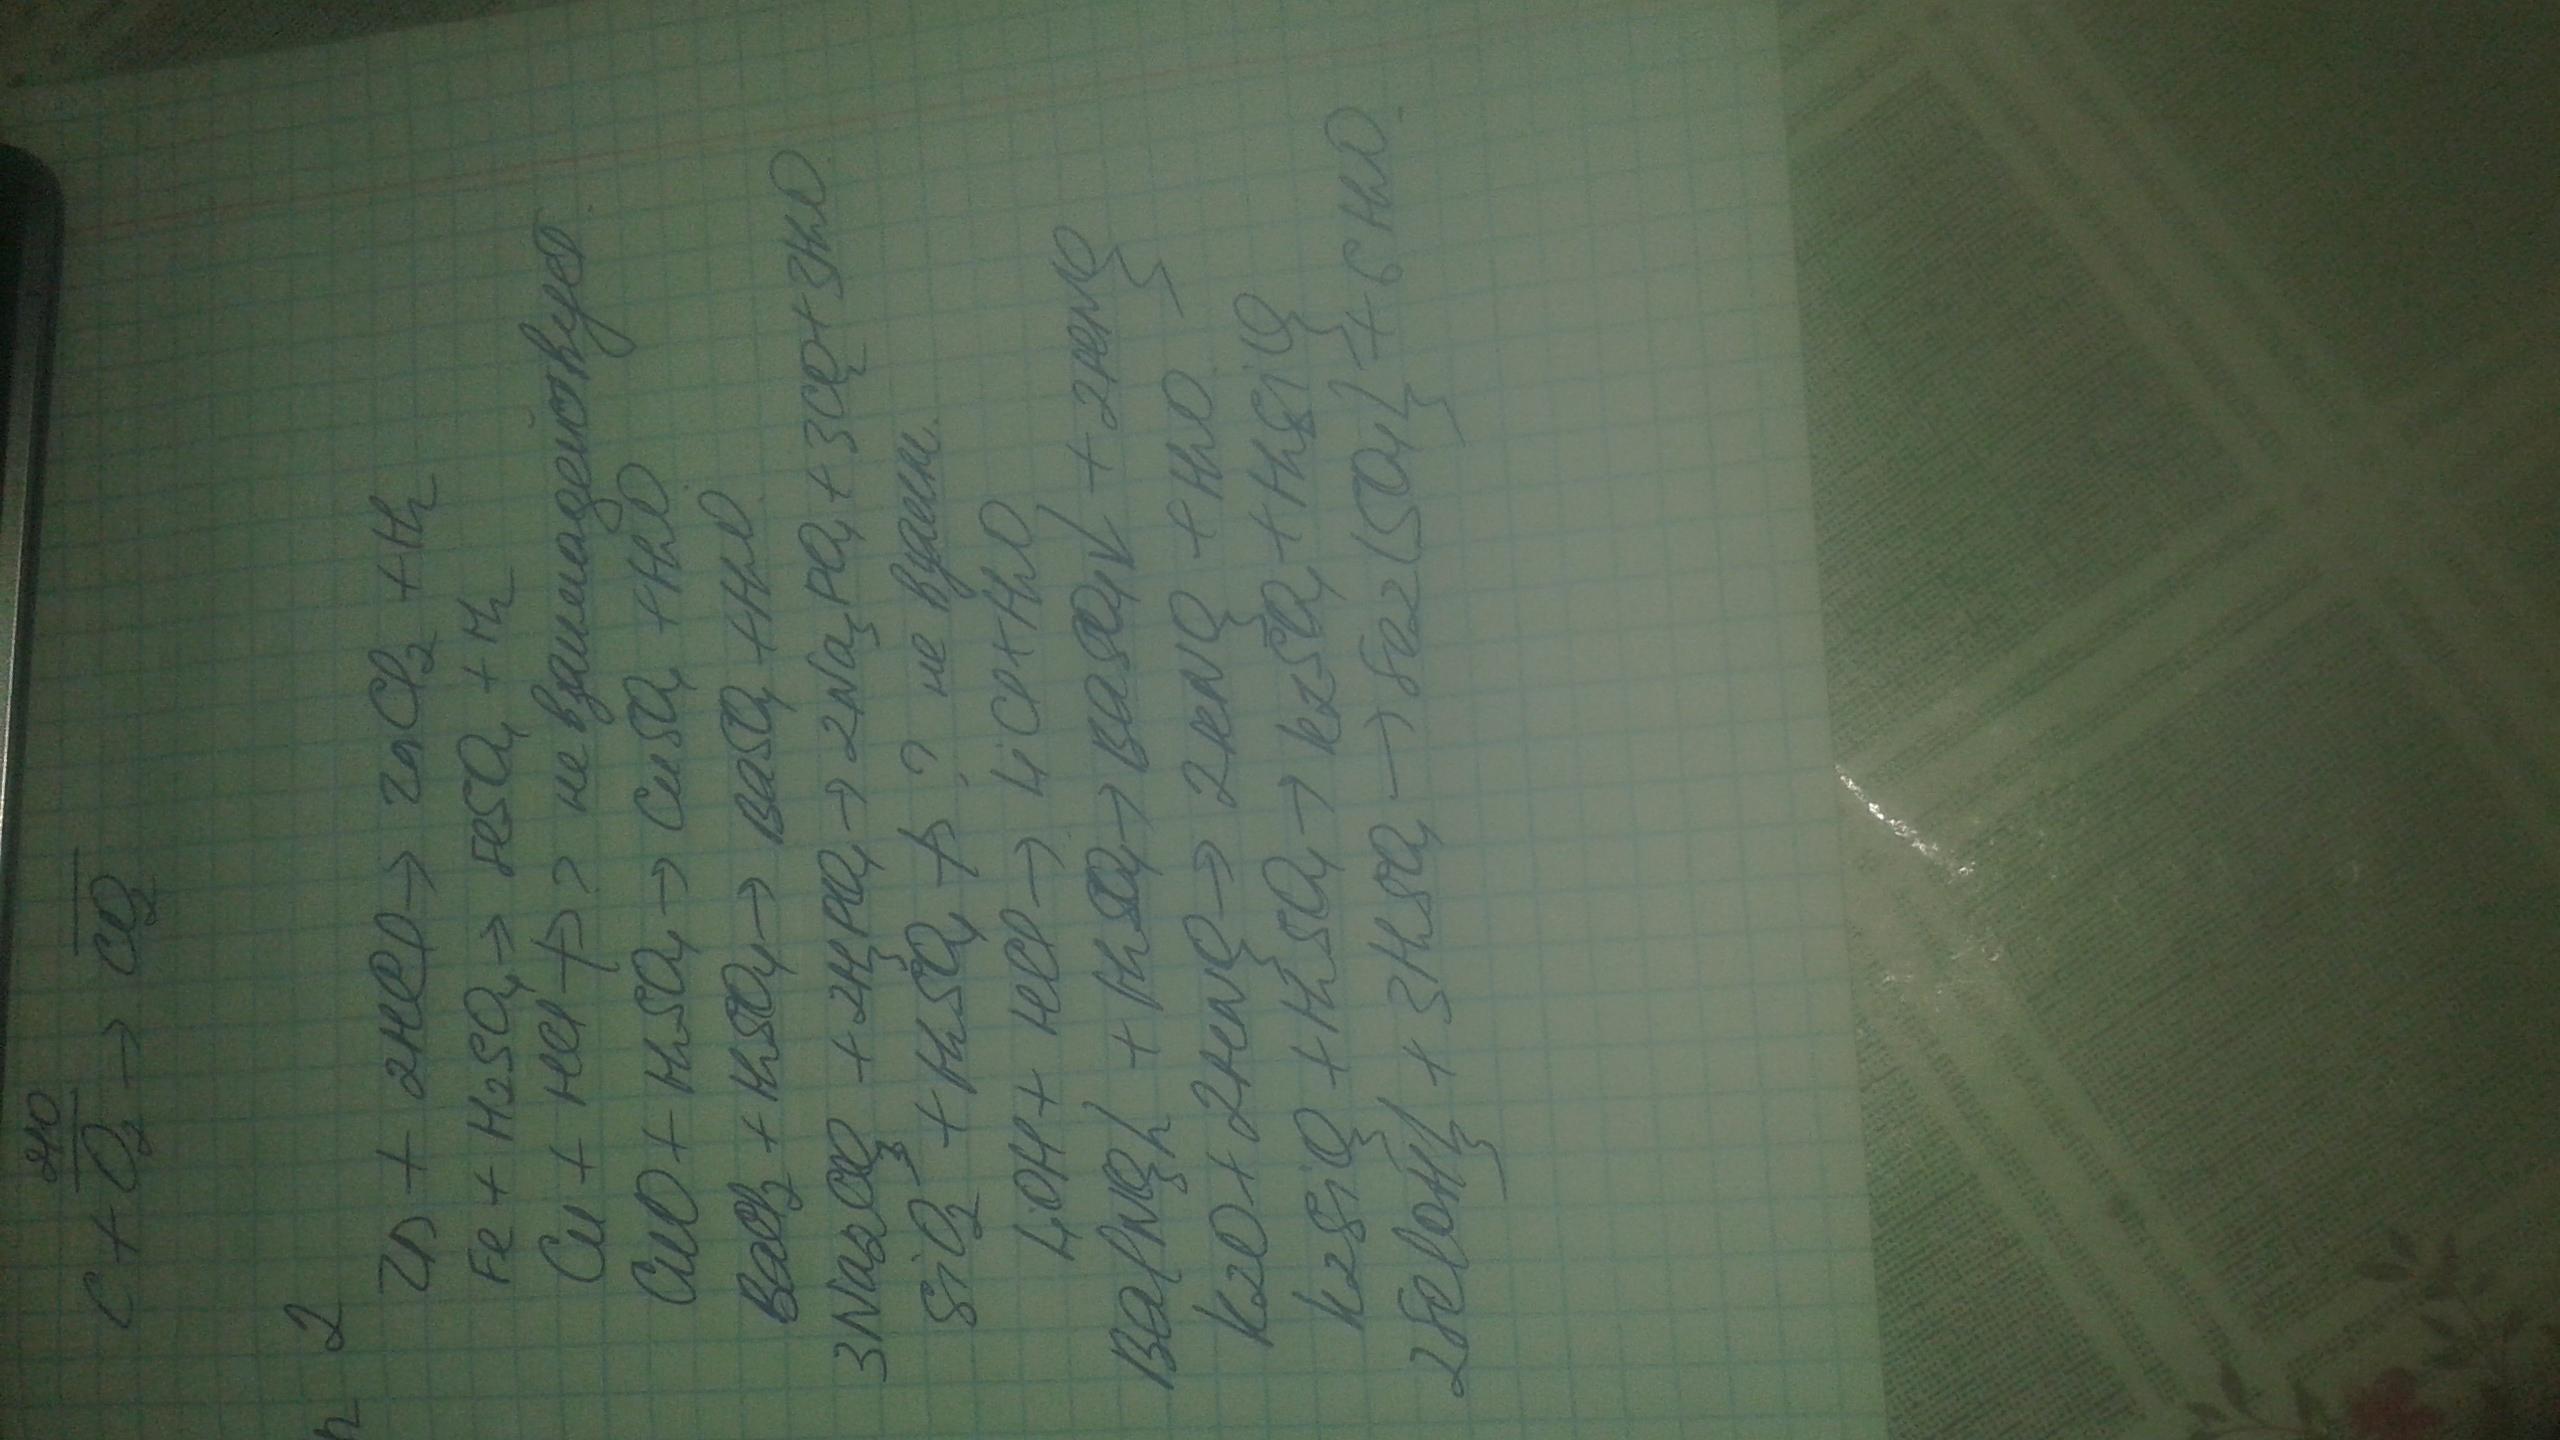 240
C + O2 → CO2
2
Zn + 2HCl → ZnCl2 + H2
Fe + H2SO4 → FeSO4 + H2
Cu + HCl ↛ ? не взаимодействует
CuO + H2SO4 → CuSO4 + H2O
BaCl2 + H2SO4 → BaSO4 + H2O
3Na2CO3 + 2H3PO4 → 2Na3PO4 + 3CO2 + 3H2O
SiO2 + H2SO4 ↛ ? не взаим.
LiOH + HCl → LiCl + H2O
Ba(NO3)2 + H2SO4 → BaSO4↓ + 2HNO3
K2O + 2HNO3 → 2KNO3 + H2O
K2SiO3 + H2SO4 → K2SO4 + H2SiO3
2Fe(OH)3 + 3H2SO4 → Fe2(SO4)3 + 6H2O.